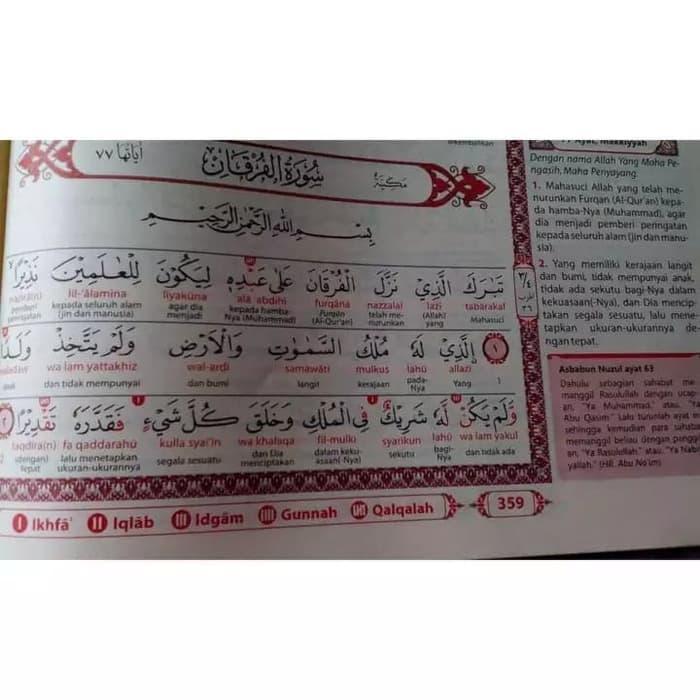 اٰيَاتُهَا ٧٧
سُوْرَةُ الْفُرْقَانِ
مَكِّيَّةٌ
بِسْمِ اللّٰهِ الرَّحْمٰنِ الرَّحِيْمِ
تَبٰرَكَ الَّذِيْ نَزَّلَ الْفُرْقَانَ عَلٰى عَبْدِهٖ لِيَكُوْنَ لِلْعٰلَمِيْنَ نَذِيْرًا
tabārakal lażi nazzalal furqāna alā abdihī liyakūna lil-'ālamīna nażīra(n)
Mahasuci (Allah) yang telah me-nurunkan Furqān (Al-Qur'an) kepada hamba-Nya (Muhammad) agar dia menjadi kepada seluruh alam (jin dan manusia) pemberi peringatan
١ اۨلَّذِيْ لَهٗ مُلْكُ السَّمٰوٰتِ وَالْاَرْضِ وَلَمْ يَتَّخِذْ وَلَدًا
allażi lahū mulkus samāwāti wal-arḍi wa lam yattakhiż
1 Yang pada-Nya kerajaan langit dan bumi dan tidak mempunyai anak
وَّلَمْ يَكُنْ لَّهٗ شَرِيْكٌ فِى الْمُلْكِ وَخَلَقَ كُلَّ شَيْءٍ فَقَدَّرَهٗ تَقْدِيْرًا ٢
wa lam yakul lahū syarīkun fil-mulki wa khalaqa kulla syai'in fa qaddarahū taqdīra(n)
dan tidak ada bagi-Nya sekutu dalam keku-asaan(-Nya) dan Dia menciptakan segala sesuatu lalu menetapkan ukuran-ukurannya (dengan) tepat 2
I Ikhfā' II Iqlāb III Idgām IIII Gunnah Qalqalah
359
77 Ayat, Makkiyyah
Dengan nama Allah Yang Maha Pe-
ngasih, Maha Penyayang.
1. Mahasuci Allah yang telah me-
nurunkan Furqan (Al-Qur'an) kepa-
da hamba-Nya (Muhammad), agar
dia menjadi pemberi peringatan
kepada seluruh alam (jin dan manu-
sia).
2. Yang memiliki kerajaan langit
dan bumi, tidak mempunyai anak,
tidak ada sekutu bagi-Nya dalam
kekuasaan(-Nya), dan Dia mencip-
takan segala sesuatu, lalu mene-
tapkan ukuran-ukurannya de-
ngan tepat.
Asbabun Nuzul ayat 63
Dahulu sebagian sahabat me-
manggil Rasulullah dengan ucap-
an, "Ya Muhammad," atau, "Ya
Abu Qasim." Lalu turunlah ayat
sehingga kemudian para sahabat
memanggil beliau dengan pangg
an, "Ya Rasulullah," atau, "Ya Nabi
yallah." (HR. Abu No'im)